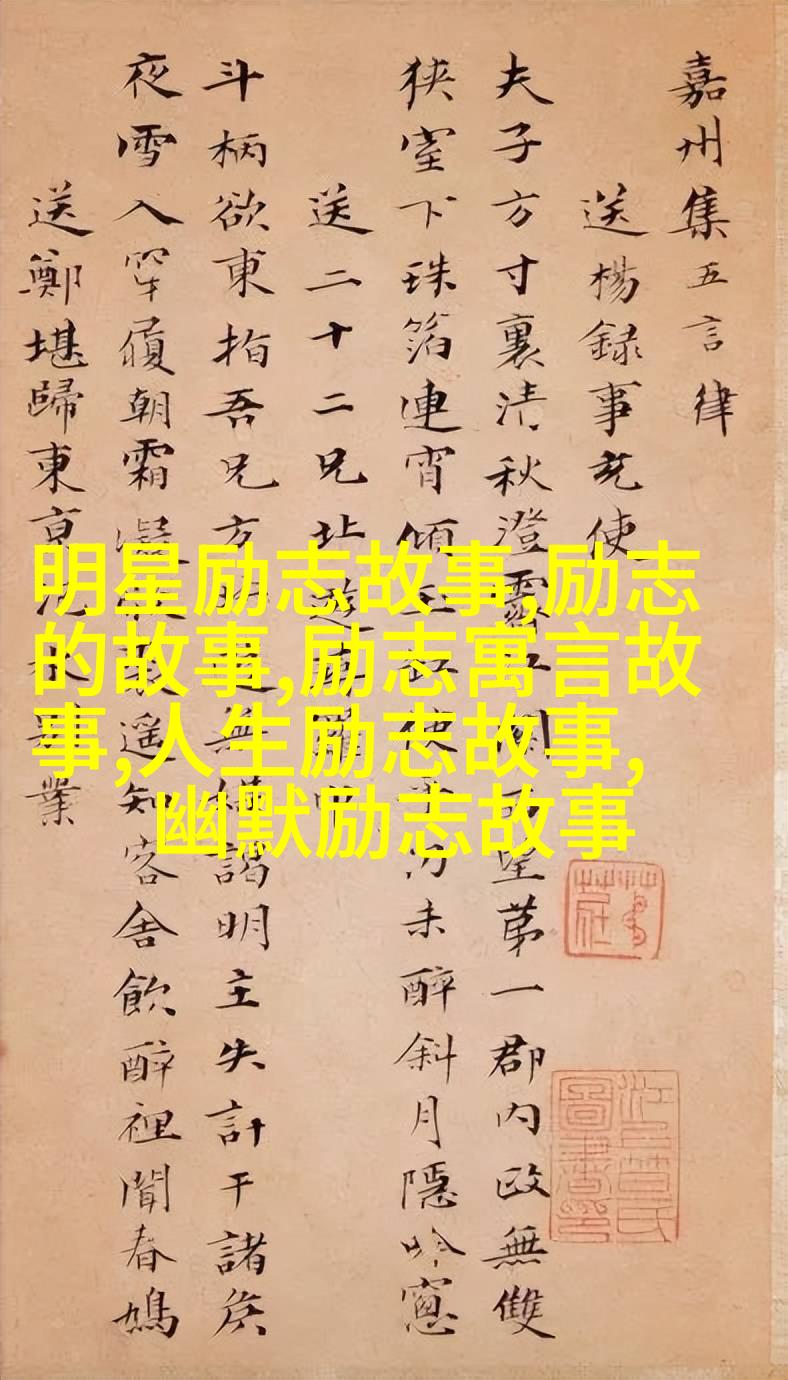 嘉州集五言律
送楊録事充使
夫子方寸裏清秋澄霽江關西望第一郡内政無雙
狹室下珠箔連宵傾玉缸使乎勿未醉斜月隱吟窻
送二十二兄北遊尋羅中
斗柄欲東指吾兄方明主失計干諸矦
夜雪入穿履朝霜凝遥知客舎飲醉裡聞春鳩
送鄭堪歸東京汜水别業
明星励志故事,励志
的故事,励志寓言故
事,人生励志故事,
幽默励志故事